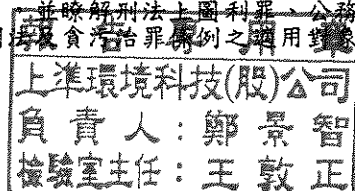 並瞭解刑法上圖利罪、公務
法及貪污治罪條例之適用對象
上準環境科技(股)公司
負責人：鄭景智
檢驗室主任：王敦正